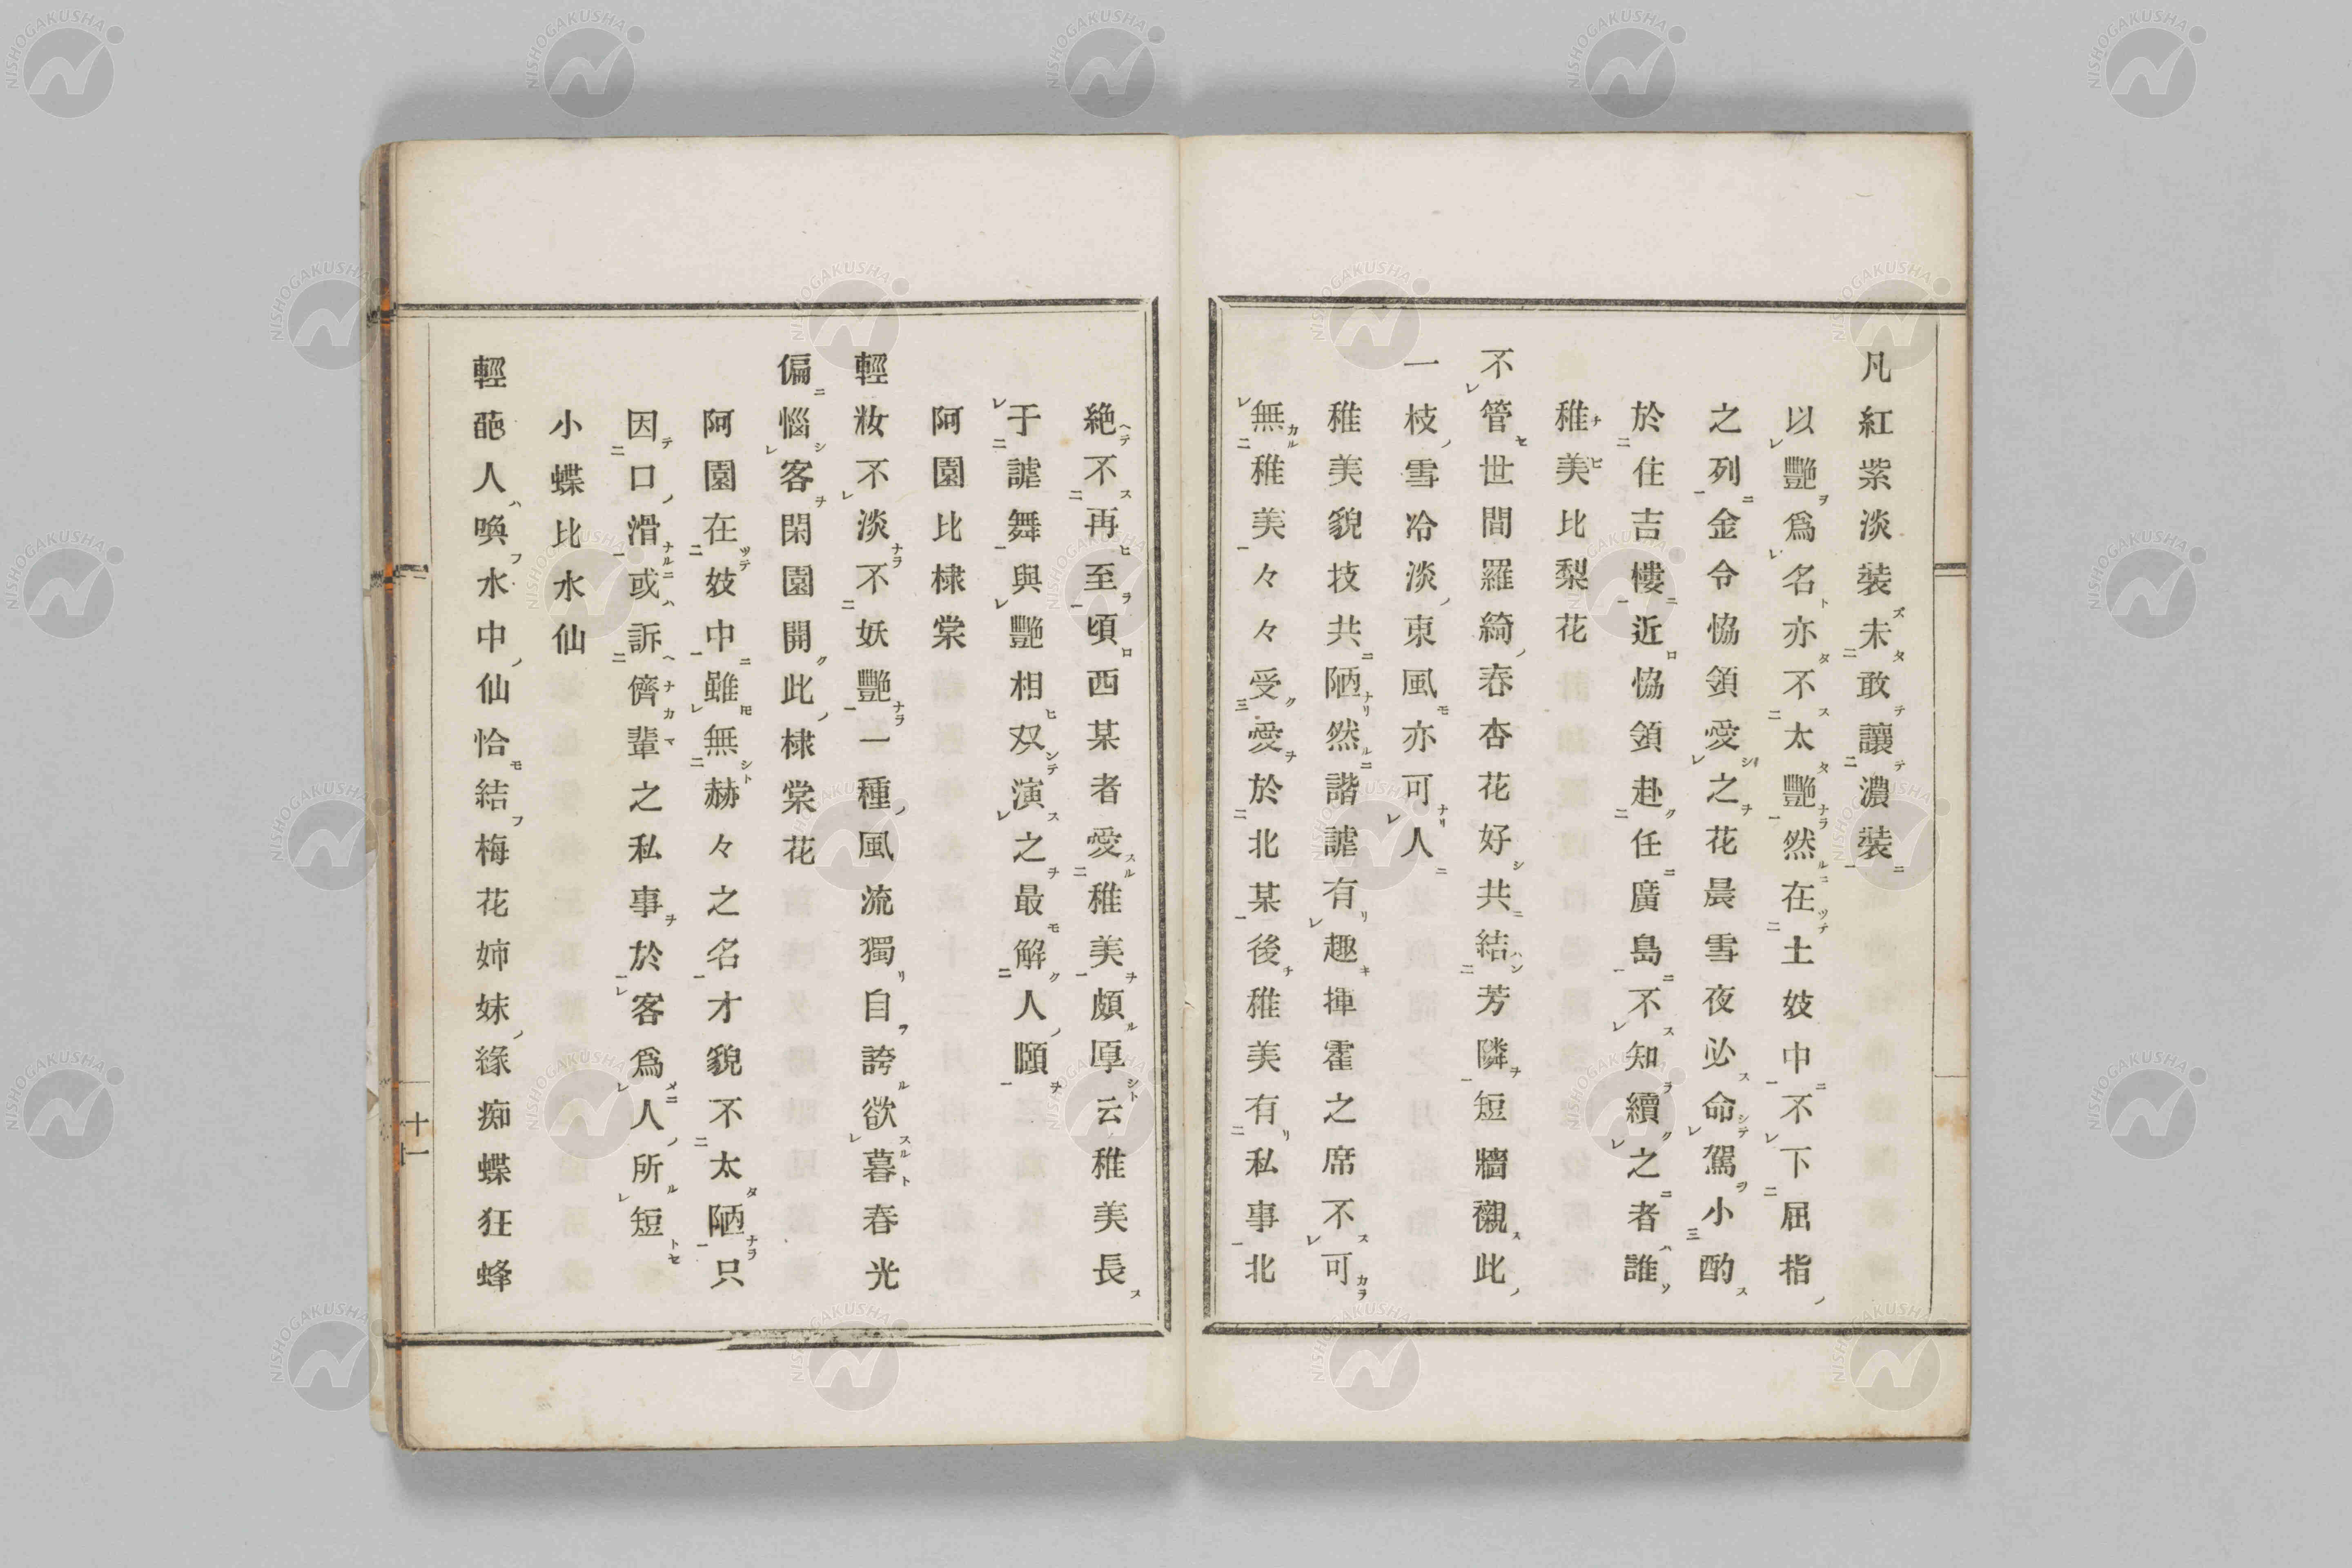 凡紅紫淡裝未敢讓濃裝
以艷爲名亦不太艷然在土妓中不下屈指
之列金令恊領愛之花晨雪夜必命駕小酌
於住吉樓近恊領赴任廣島不知續之者誰
稚美比梨花
不管世間羅綺春杏花好共結芳隣短牆襯此
一枝雪冷淡東風亦可人
稚美貌技共陋然諧謔有趣揮霍之席不可
無稚美々々受愛於北某後稚美有私事北
絶不再至頃西某者愛稚美頗厚云稚美長
于謔舞與艷相双演之最解人頤
阿園比棣棠
輕妝不淡不妖艷一種風流獨自誇欲暮春光
偏惱客閑園開此棣棠花
阿園在妓中雖無赫々之名才貌不太陋只
因口滑或訴儕輩之私事於客爲人所短
小蝶比水仙
輕葩人喚水中仙恰結梅花姉妹緣痴蝶狂蜂
十一